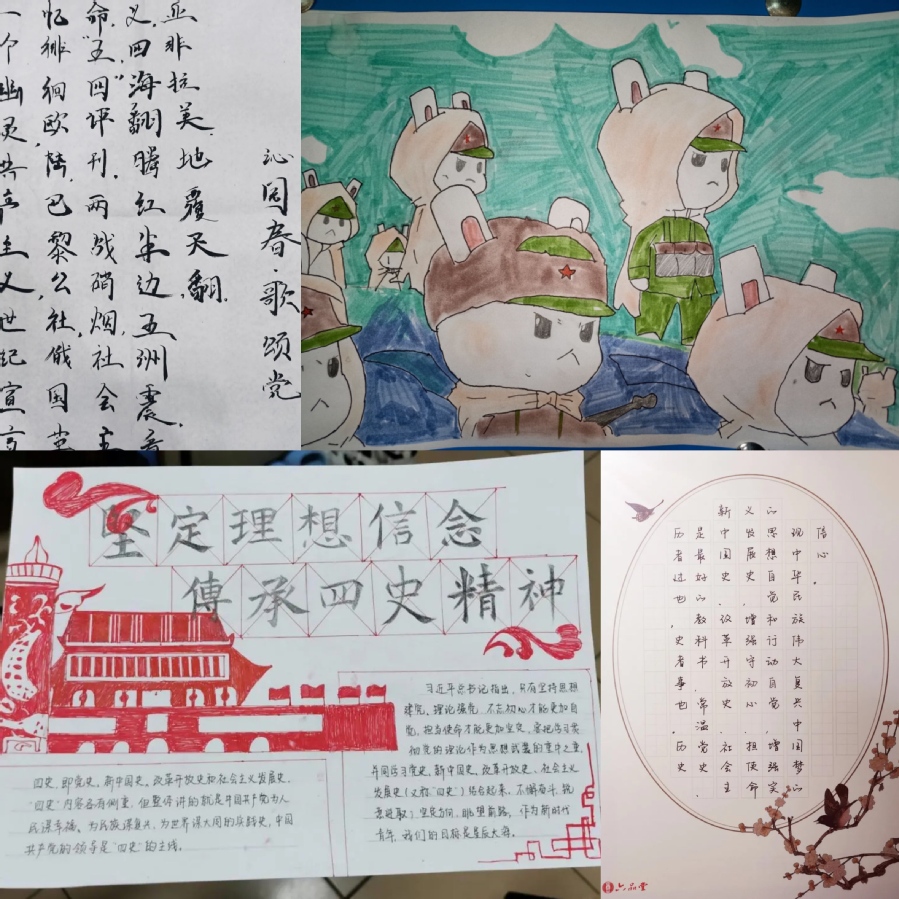 沁园春·歌颂党
一个幽灵共产主义世纪宣言
忆徘徊欧陆,巴黎公社,俄国革
命,"五四"评刊,两战硝烟,社会主
义,四海翻腾红半边五洲震,看
亚非拉美,地覆天翻.
坚定理想信念
傳承四史精神
四史,即党史、新中国史、改革开放史和社会主义发展史,
"四史"内容各有侧重,但整体讲的就是中国共产党为人
民谋幸福、为民族谋复兴、为世界谋大同的实践史,中国
共产党的领导是"四史"的主线。
习近平总书记指出,只有坚持思想
建党、理论强党,不忘初心才能更加自
觉,担当使命才能更加坚定。要把学习贯
彻党的理论作为思想武装的重中之重,
并同学习党史、新中国史、改革开放史、社会主义
发展史(又称"四史")结合起来,不懈奋斗、锐
意进取;坚定方向,眺望前路,作为新时代
青年,我们的目标是星辰大海。
历者过也,史者事也,历史
是最好的教科书,常温党史、
新中国史、改革开放史、社会主
义发展史,增强守初心、担使命
的思想自觉和行动自觉,增强实
现中华民族伟大复兴中国梦的
信心。
六品堂